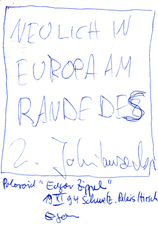 NEULICH IN
EUROPA AM
RANDE DES
2. Jahrtausends
Polaroid "Edgar Zippel"
19 XI 94 Schwetz. Palais Hirsch